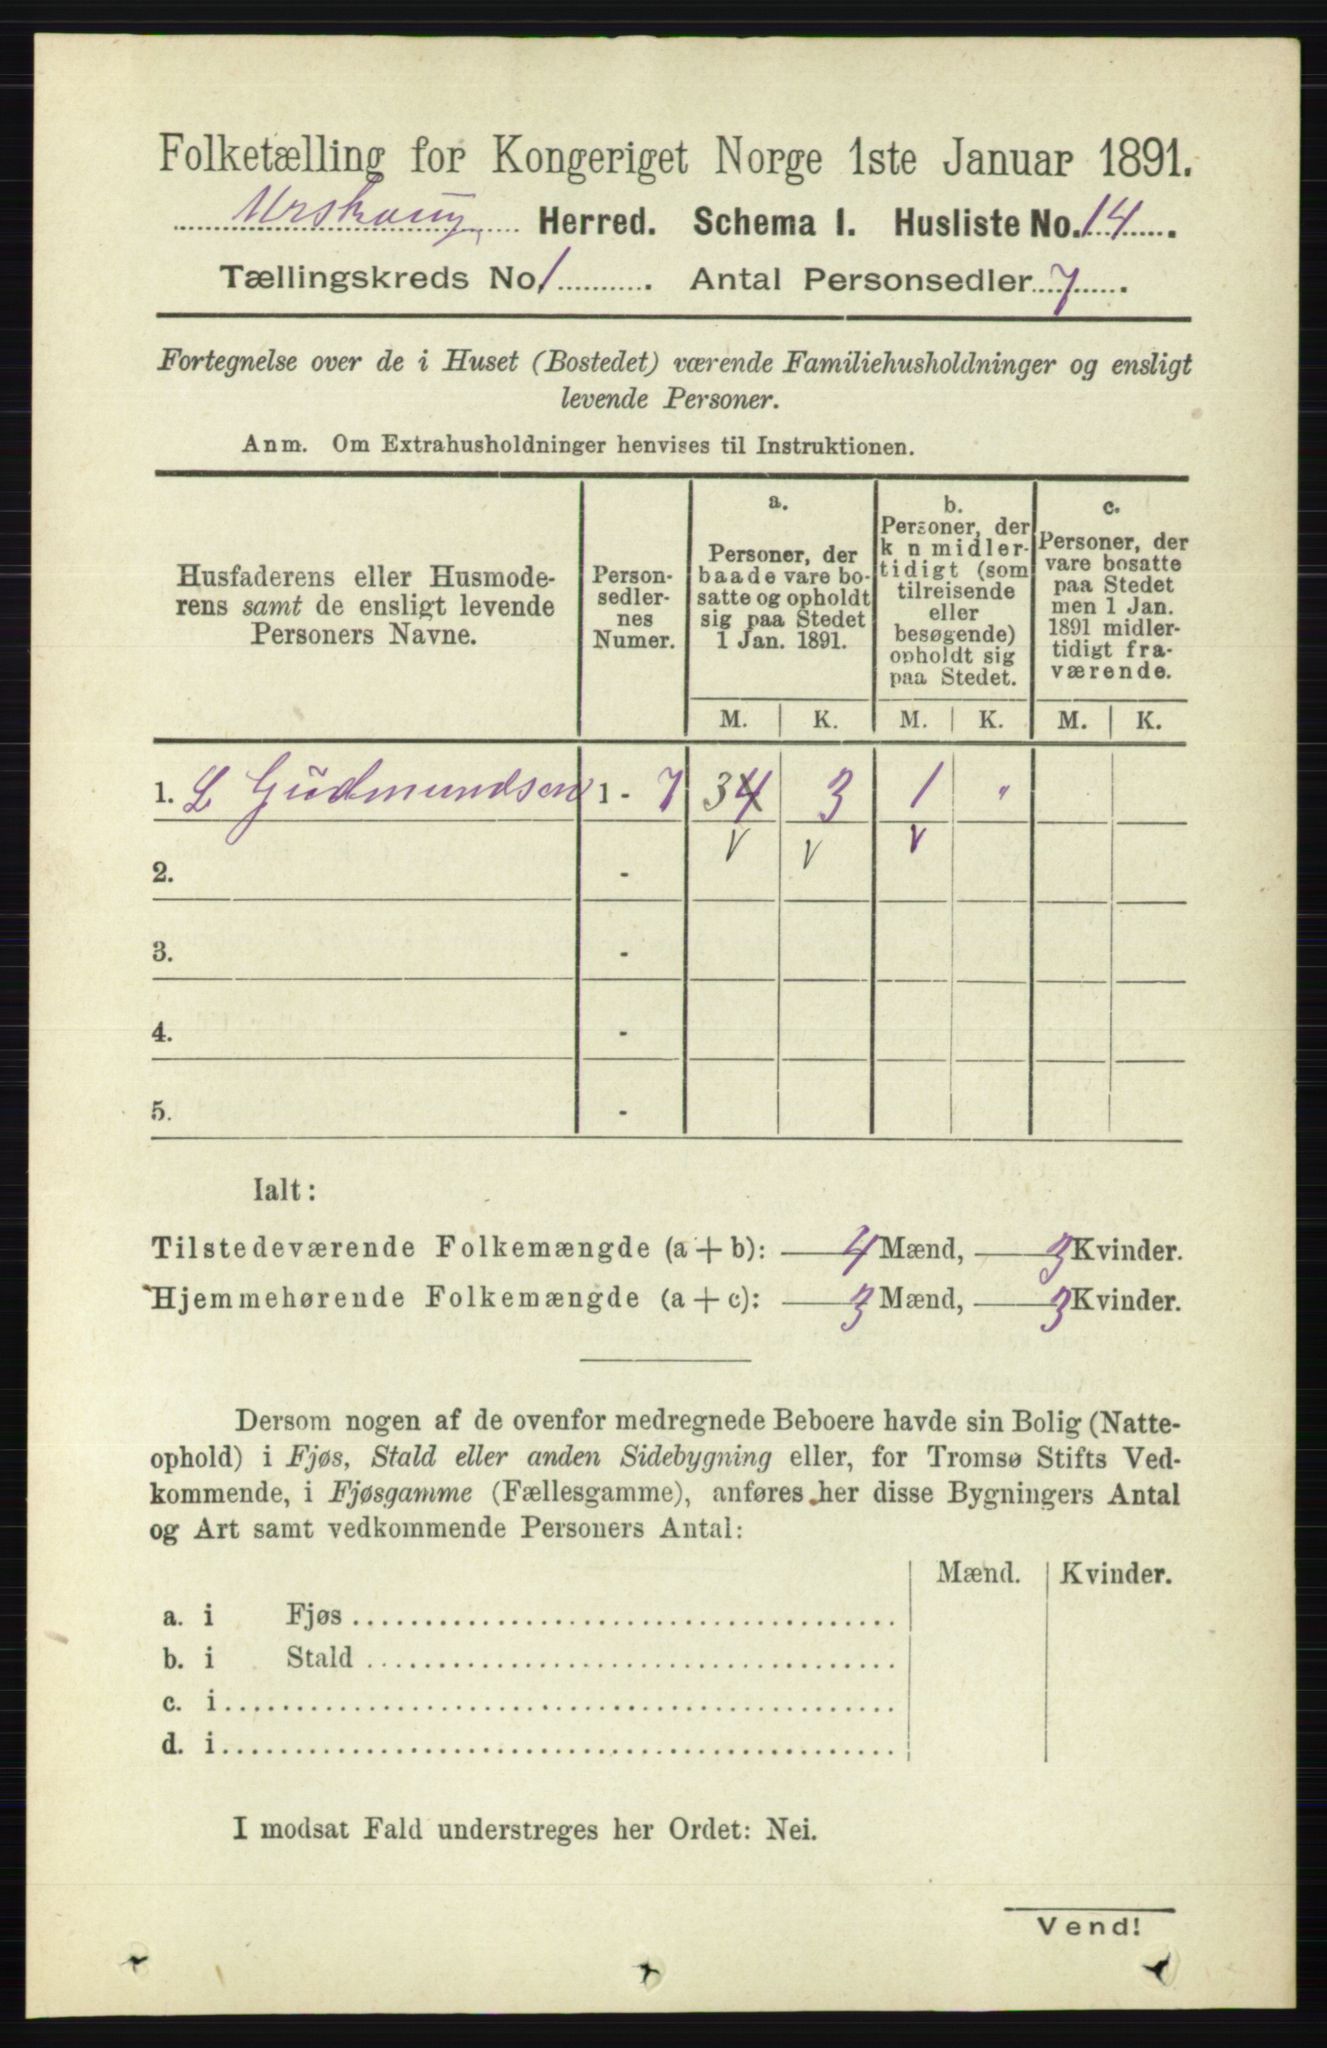 Folketælling for Kongeriget Norge 1ste Januar 1891.
Urskoug Herred. Schema I. Husliste No. 14.
Tællingskreds No 1. Antal Personsedler 7.
Fortegnelse over de i Huset (Bostedet) værende Familiehusholdninger og ensligt
levende Personer.
Anm. Om Extrahusholdninger henvises til Instruktionen.
Husfaderens eller Husmode-
rens samt de ensligt levende
Personers Navne.
Person-
sedler-
nes
Numer.
a.
Personer, der
baade vare bo-
satte og opholdt
sig paa Stedet
1 Jan. 1891.
b.
Personer, der
k n midler-
tidigt (som
tilreisende
eller
besøgende)
opholdt sig
paa Stedet.
c.
Personer, der
vare bosatte
paa Stedet
men 1 Jan.
1891 midler-
tidigt fra-
værende.
M. K. M. K. M. K.
1. L Gudmundsen 1 - 7 3 4 3 1 "
V V V
2. -
3. -
4. -
5. -
Ialt:
Tilstedeværende Folkemængde (a + b): 4 Mænd, 3 Kvinder.
Hjemmehørende Folkemængde (a + c): 3 Mænd, 3 Kvinder.
Dersom nogen af de ovenfor medregnede Beboere havde sin Bolig (Natte-
ophold) i Fjøs, Stald eller anden Sidebygning eller, for Tromsø Stifts Ved-
kommende, i Fjøsgamme (Fællesgamme), anføres her disse Bygningers Antal
og Art samt vedkommende Personers Antal:
Mænd. Kvinder.
a. i Fjøs
b. i Stald
c. i
d. i
I modsat Fald understreges her Ordet: Nei.
Vend!